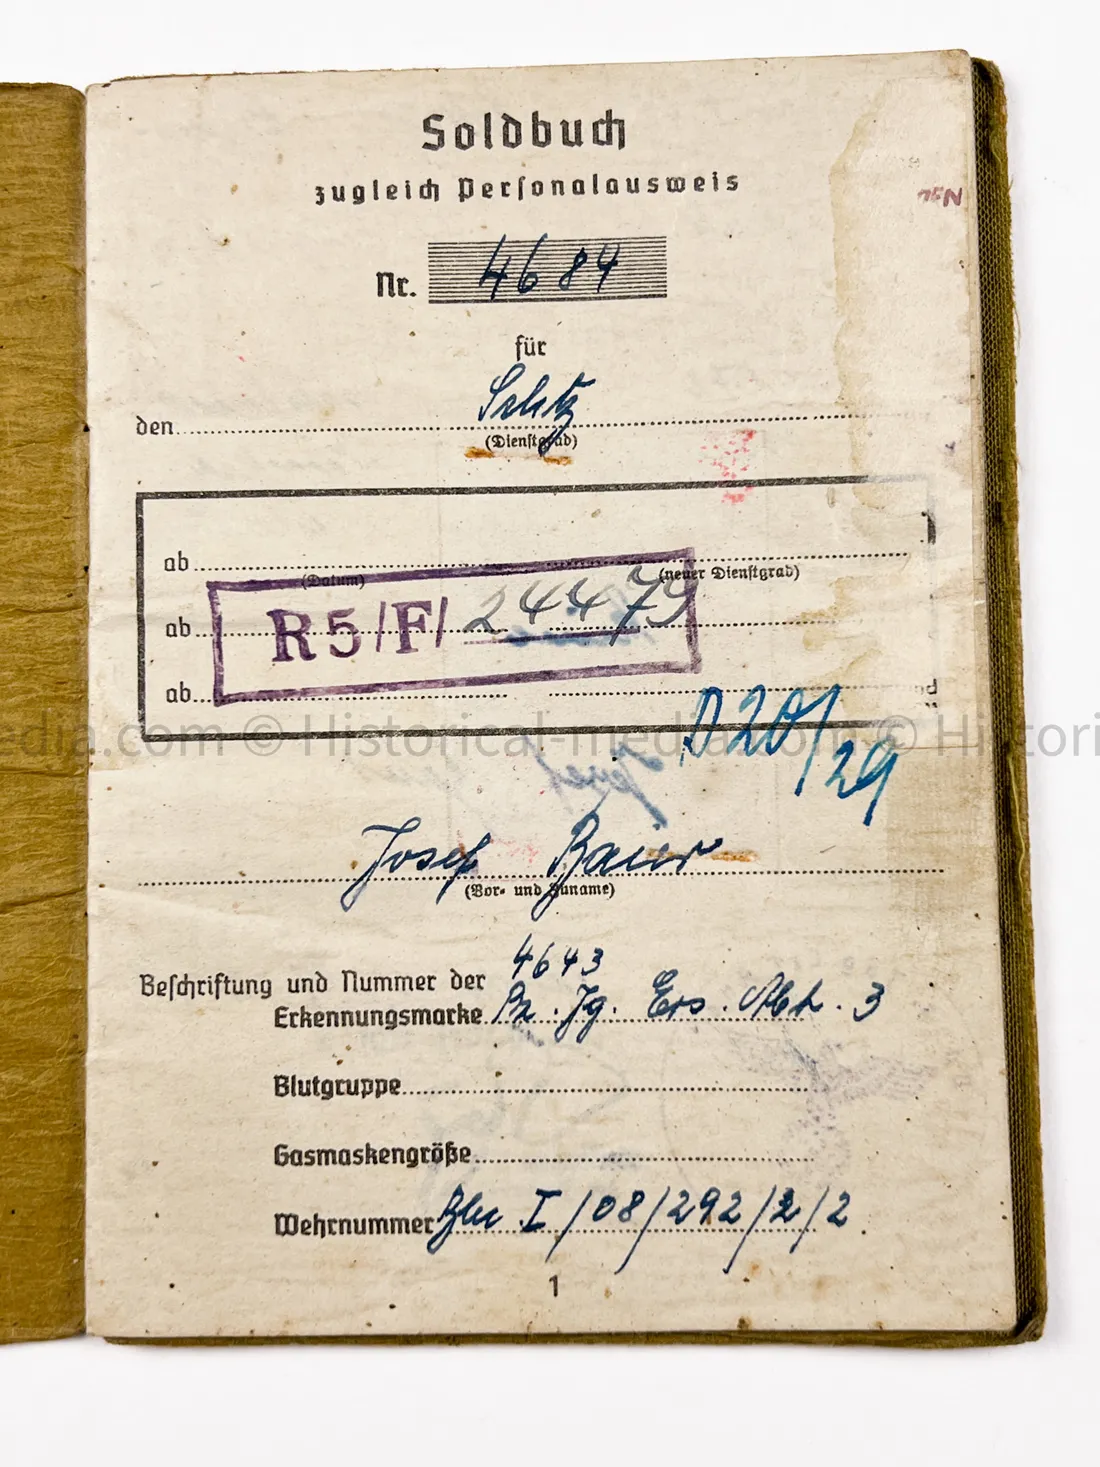 Soldbuch
zugleich Personalausweis
Nr. 4684
für
den Schtz
(Dienstgrad)
ab
(Datum) (neuer Dienstgrad)
ab
R5/F/ 24479
ab
D 20/29
edia.com © Historical-media.com © Histori
Josef Baier
(Vor- und Zuname)
4643
Beschriftung und Nummer der
Erkennungsmarke Pz. Jg. Ers. Abt. 3
Blutgruppe
Gasmaskengröße
Wehrnummer I/08/292/2/2
1